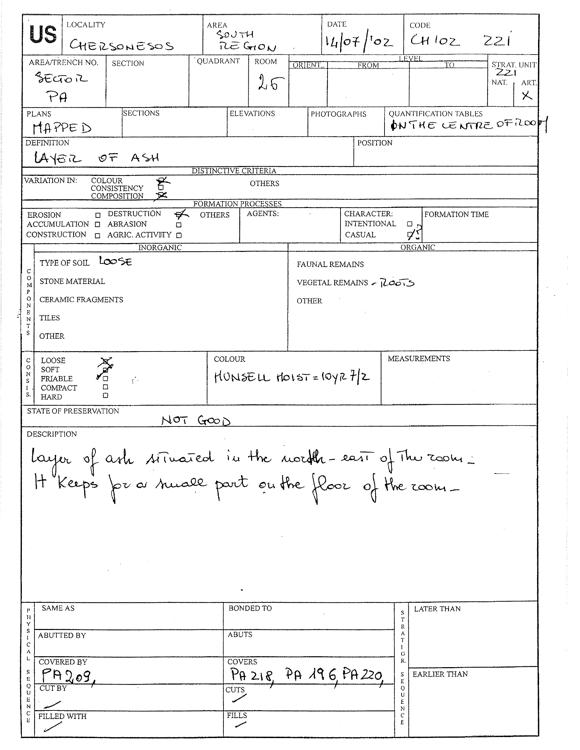 US
LOCALITY
CHERSONESOS
AREA
SOUTH
REGION
DATE
14/07/'02
CODE
CH102 221
AREA/TRENCH NO.
SECTOR
PA
SECTION
QUADRANT
ROOM
26
LEVEL
ORIENT. FROM TO
STRAT. UNIT
221
NAT. ART.
X
PLANS
MAPPED
SECTIONS
ELEVATIONS
PHOTOGRAPHS
QUANTIFICATION TABLES
ON THE CENTRE OF ROOM
DEFINITION
LAYER OF ASH
POSITION
DISTINCTIVE CRITERIA
VARIATION IN: COLOUR
CONSISTENCY
COMPOSITION
OTHERS
FORMATION PROCESSES
EROSION DESTRUCTION OTHERS
ACCUMULATION ABRASION
CONSTRUCTION AGRIC. ACTIVITY
AGENTS:
CHARACTER:
INTENTIONAL
CASUAL
?
FORMATION TIME
COMPONENTS
INORGANIC
TYPE OF SOIL LOOSE
STONE MATERIAL
CERAMIC FRAGMENTS
TILES
OTHER
ORGANIC
FAUNAL REMAINS
VEGETAL REMAINS - ROOTS
OTHER
CONSIS.
LOOSE
SOFT
FRIABLE
COMPACT
HARD
COLOUR
MUNSELL MOIST = 10YR 7/2
MEASUREMENTS
STATE OF PRESERVATION
NOT GOOD
DESCRIPTION
Layer of ash situated in the north-east of the room_
It keeps for a small part on the floor of the room_
PHYSICAL SEQUENCE
SAME AS
BONDED TO
ABUTTED BY
ABUTS
COVERED BY
PA209,
COVERS
PA 218, PA 196, PA220,
CUT BY
CUTS
FILLED WITH
FILLS
STRATIGR. SEQUENCE
LATER THAN
EARLIER THAN